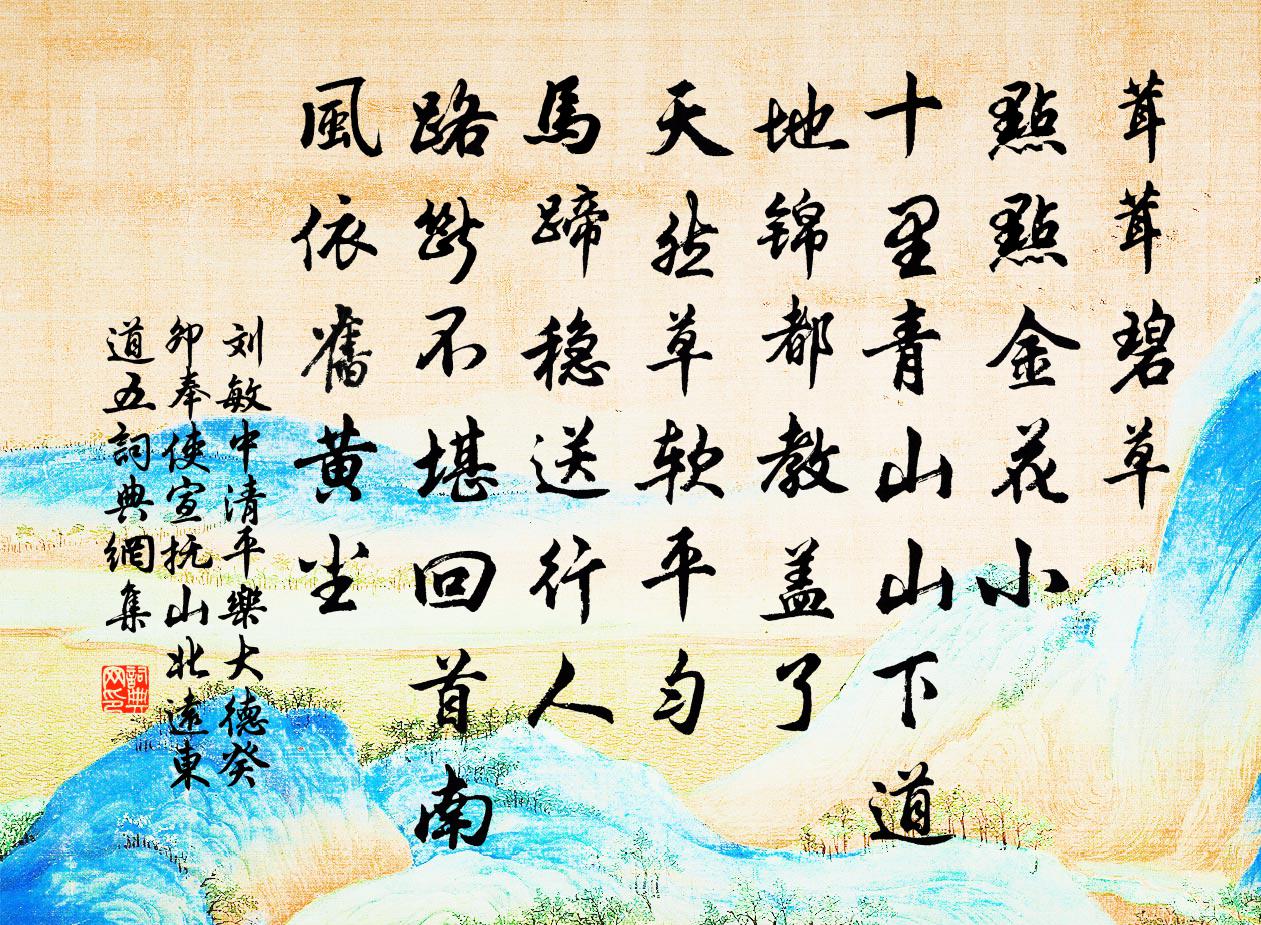 茸茸碧草
點點金花小
十里青山山下道
地錦都教蓋了
天然草软平勻
馬蹄穏送行人
路斷不堪回首南
風依舊黄尘
刘敏中清平樂大德癸
卯奉使宣抚山北遼東
道五詞典網集
詞典
网印